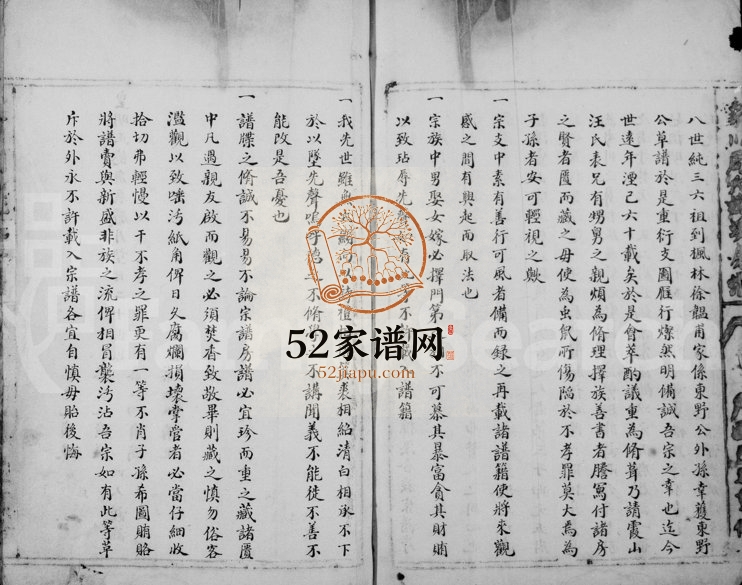 八世純三六祖到楓林徐韞甫家係東野公外孫幸獲東野
公草譜於是重衍支圖雁行燦然明備誠吾宗之幸也迄今
世遠年湮已六十載矣於是會萃酌議重為脩葺乃請霞山
汪氏表兄有甥舅之親煩為脩理擇族善書者謄寫付諸房
之賢者匱而藏之毋使為虫鼠所傷陷於不孝罪莫大焉為
子孫者安可輕視之歟
一宗支中素有善行可風者備而錄之再載諸譜籍使將來觀
感之間有興起而取法也
一宗族中男娶女嫁必擇門第 不可慕其暴富貪其財賄
以致玷辱先 譜籍
一我先世雖 相紹清白相承不下
於以墜先聲嗚呼 不脩 不講聞義不能徙不善不
能改是吾憂也
一譜牒之脩誠不易易不論宗譜房譜必宜珍而重之藏諸匱
中凡遇親友啟而觀之必須焚香致敬畢則藏之慎勿俗客
濫觀以致 污紙角俾日久腐爛損壞掌管者必當仔細收
拾切弗輕慢以干不孝之罪更有一等不肖子孫希圖賄賂
將譜賣與新盛非族之流俾相冒襲污沾吾宗如有此等草
斥於外永不許載入宗譜各宜自慎毋貽後悔
52家谱网
52jiapu.com